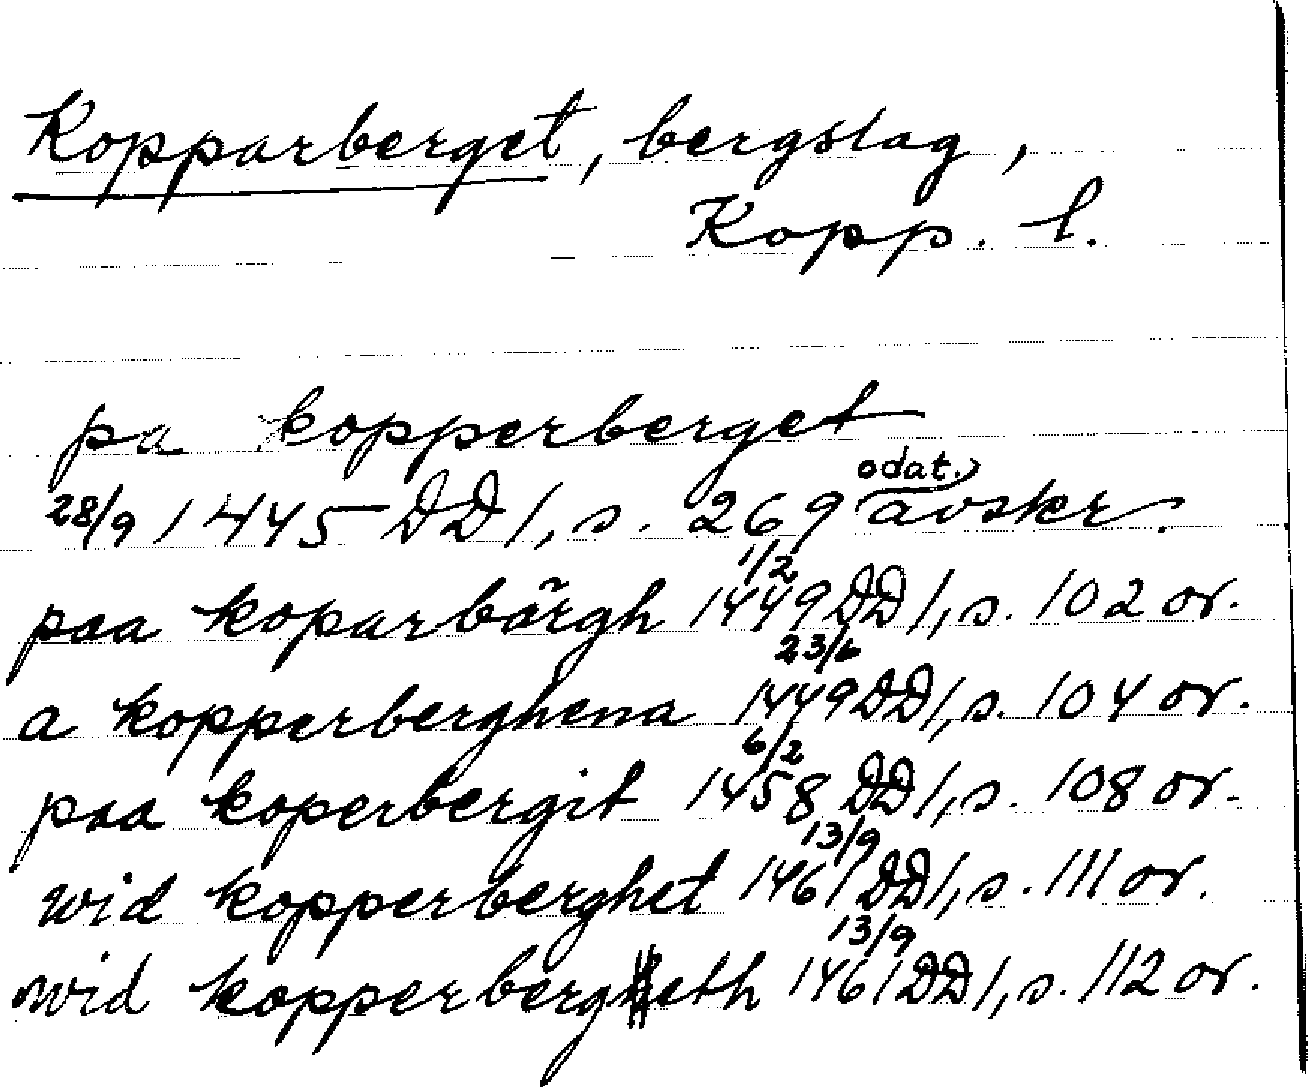 Kopparberget, bergslag,
Kopp. l.
pa kopperberget
28/9 1445 DD 1, s. 269 odat. avskr.
paa koparbärgh 1/2 1449 DD 1, s. 102 or.
a kopperberghena 23/6 1449 DD 1, s. 104 or.
paa koperbergit 6/2 1458 DD 1, s. 108 or.
wid kopperberghet 13/9 1461 DD 1, s. 111 or.
wid kopperbergeth 13/9 1461 DD 1, s. 112 or.